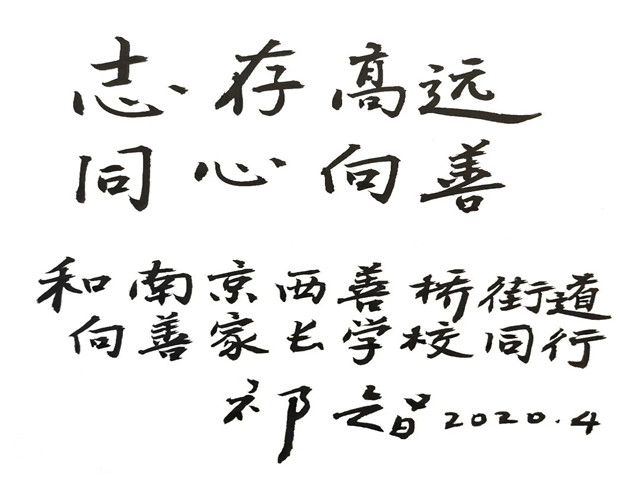 志存高远
同心向善
和南京西善桥街道
向善家长学校同行
祁智 2020.4